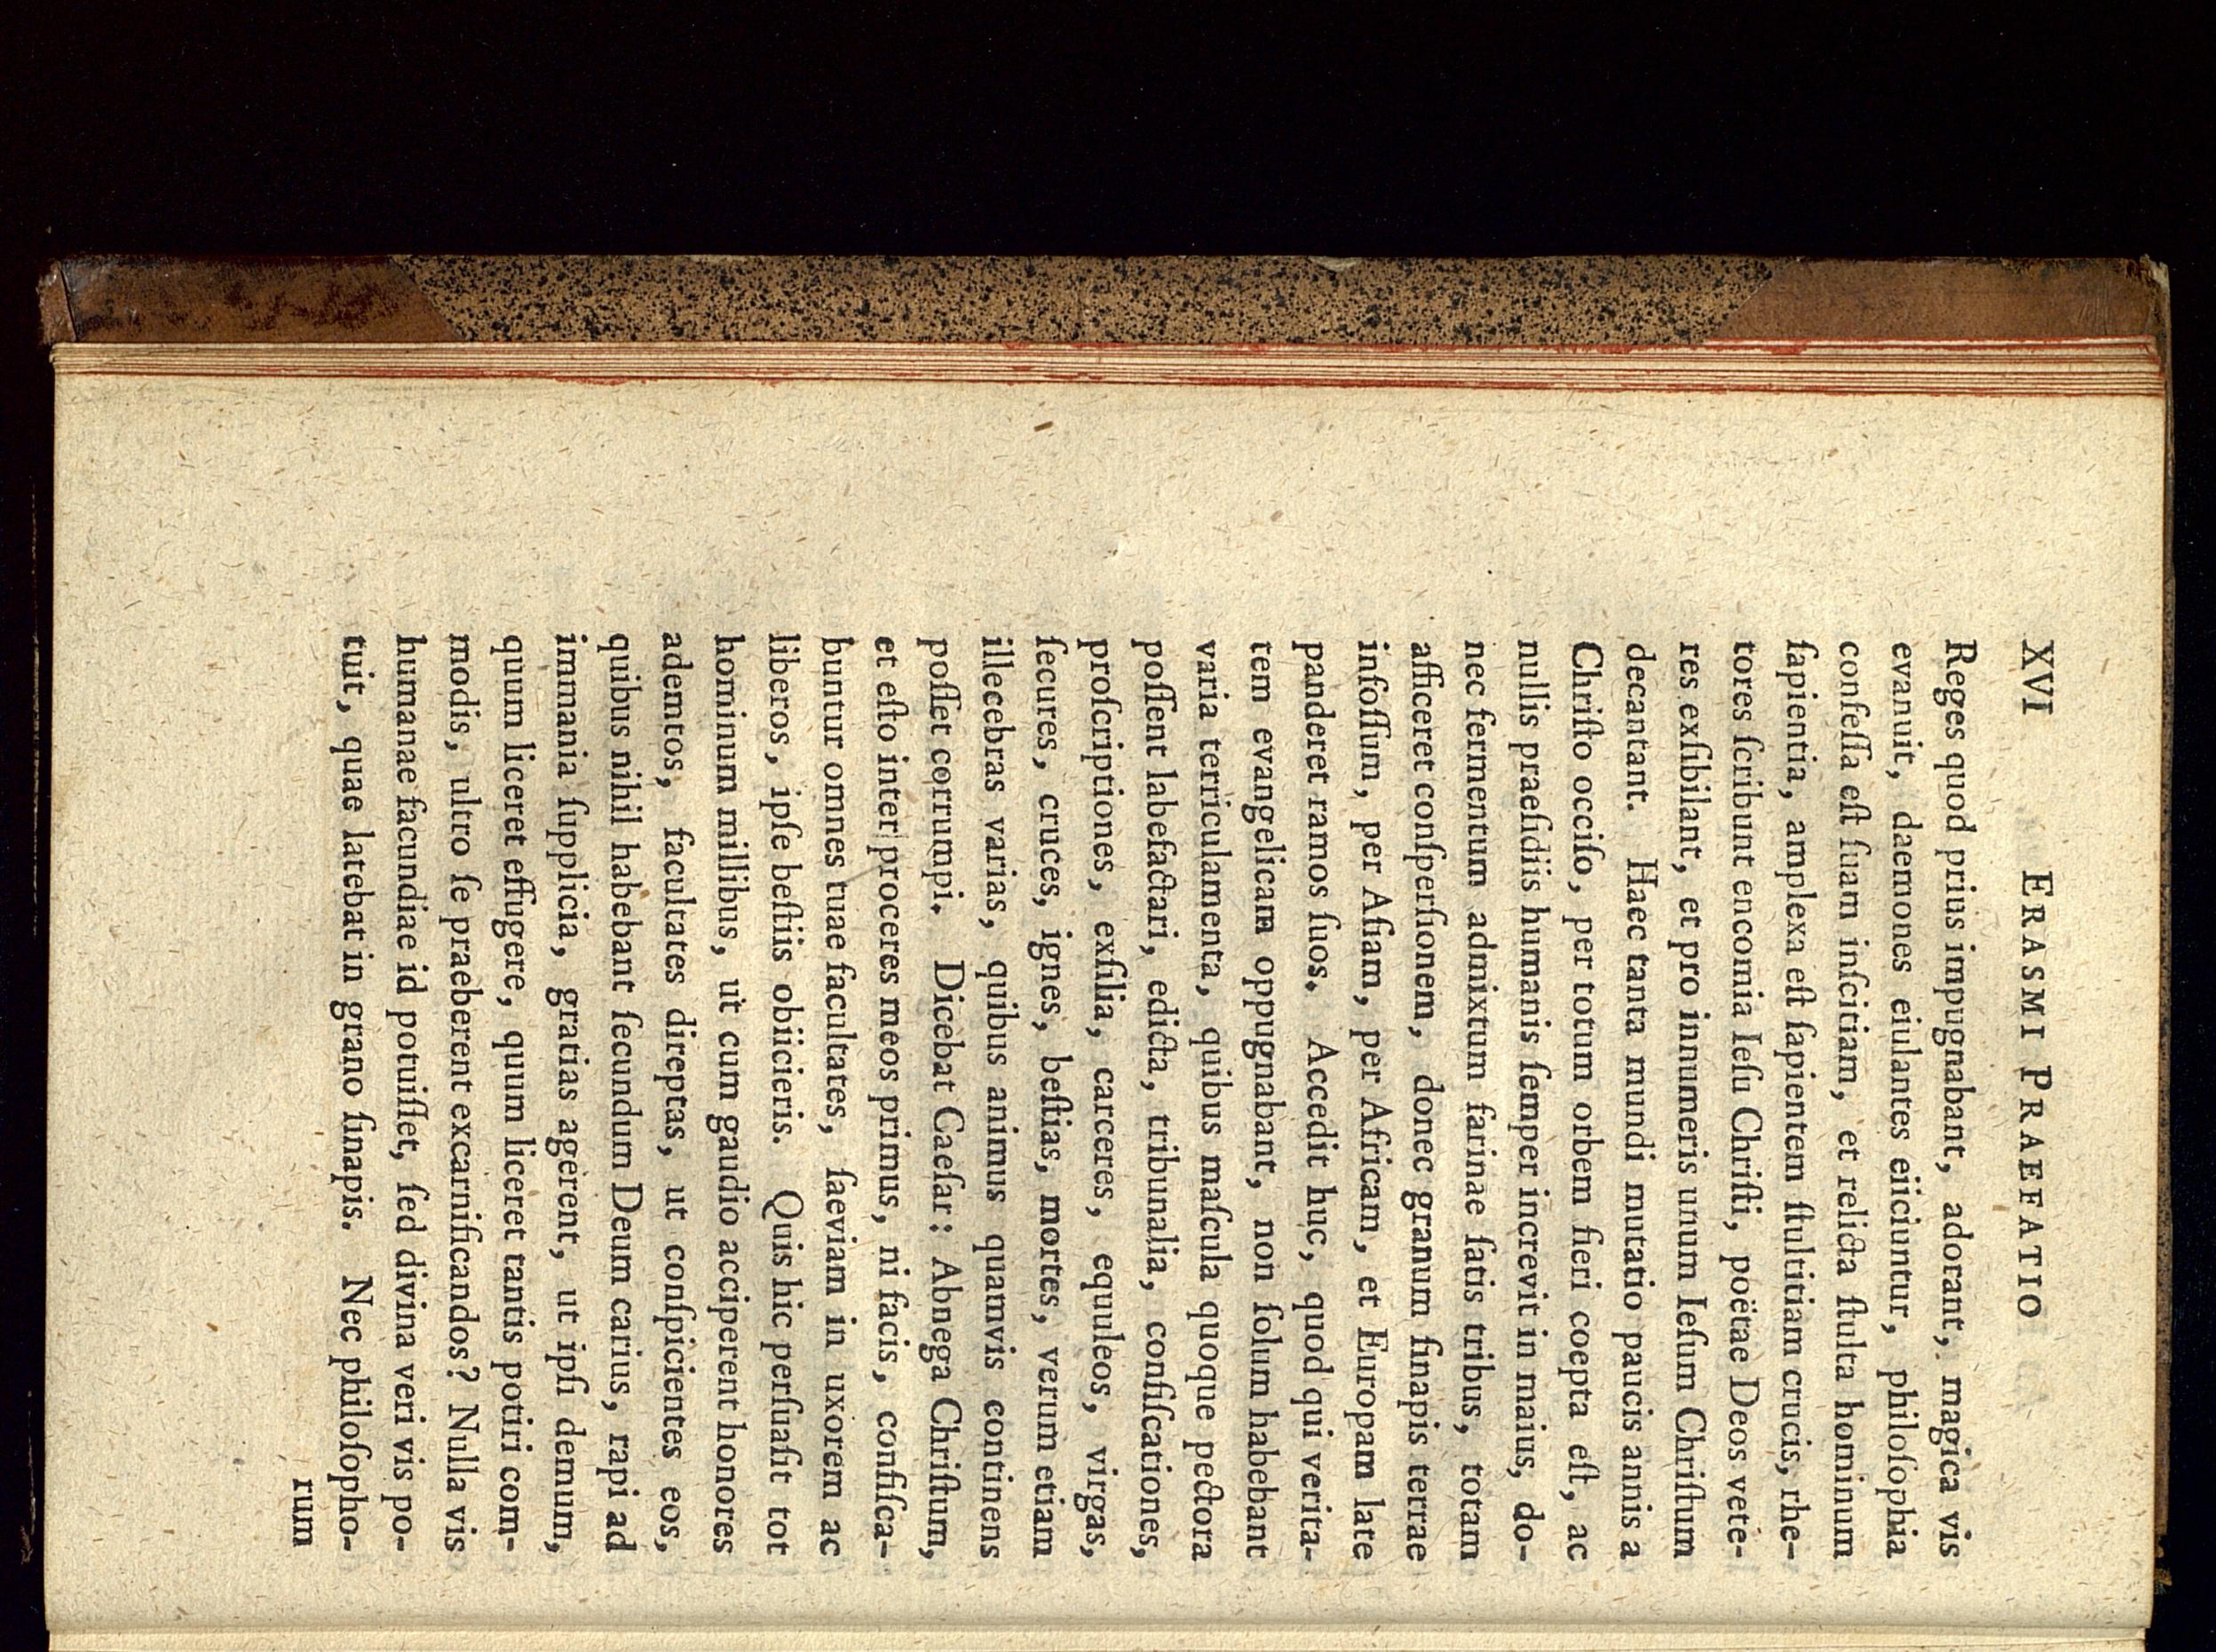 XVI ERASMI PRAEFATIO
Reges quod prius impugnabant, adorant, magica vis
evanuit, daemones eiulantes eiiciuntur, philoſophia
confeſſa eſt ſuam inſcitiam, et relicta ſtulta hominum
ſapientia, amplexa eſt ſapientem ſtultitiam crucis, rhe-
tores ſcribunt encomia Ieſu Chriſti, poëtae Deos vete-
res exſibilant, et pro innumeris unum Ieſum Chriſtum
decantant. Haec tanta mundi mutatio paucis annis a
Chriſto occiſo, per totum orbem fieri coepta eſt, ac
nullis praeſidiis humanis ſemper increvit in maius, do-
nec fermentum admixtum farinae ſatis tribus, totam
afficeret conſperſionem, donec granum ſinapis terrae
infoſſum, per Aſiam, per Africam, et Europam late
panderet ramos ſuos. Accedit huc, quod qui verita-
tem evangelicam oppugnabant, non ſolum habebant
varia terriculamenta, quibus maſcula quoque pectora
poſſent labefactari, edicta, tribunalia, confiſcationes,
proſcriptiones, exſilia, carceres, equuleos, virgas,
ſecures, cruces, ignes, beſtias, mortes, verum etiam
illecebras varias, quibus animus quamvis continens
poſſet corrumpi. Dicebat Caeſar: Abnega Chriſtum,
et eſto inter proceres meos primus, ni facis, confiſca-
buntur omnes tuae facultates, ſaeviam in uxorem ac
liberos, ipſe beſtiis obiicieris. Quis hic perſuaſit tot
hominum millibus, ut cum gaudio acciperent honores
ademtos, facultates direptas, ut conſpicientes eos,
quibus nihil habebant ſecundum Deum carius, rapi ad
immania ſupplicia, gratias agerent, ut ipſi demum,
quum liceret effugere, quum liceret tantis potiri com-
modis, ultro ſe praeberent excarnificandos? Nulla vis
humanae facundiae id potuiſſet, ſed divina veri vis po-
tuit, quae latebat in grano ſinapis. Nec philoſopho-
rum